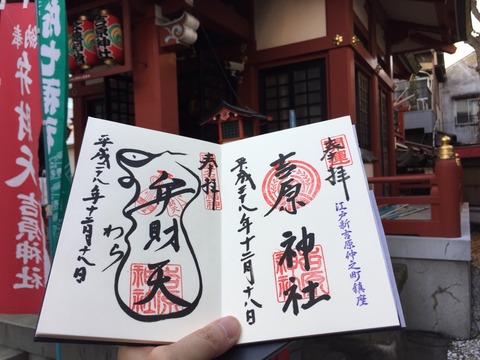 奉拝
江戸新吉原仲之町鎮座
吉原神社
吉原神社
平成二八年十二月十八日
奉拝
弁財天
吉原神社
わら
平成二八年十二月十八日
奉納
弁財天
吉原神社
吉原神社